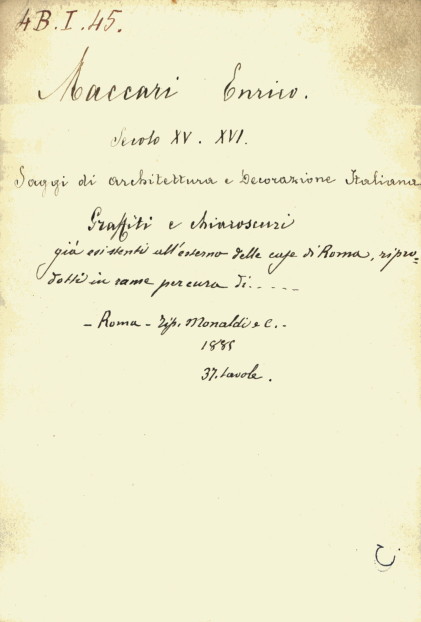 4B.I.45.
Maccari Enrico.
Secolo XV. XVI.
Saggi di architettura e Decorazione Italiana
Graffiti e chiaroscuri
già esistenti all'esterno delle case di Roma, ripro-
dotti in rame per cura di.....
- Roma - Tip. Monaldi e C. -
37. tavole.